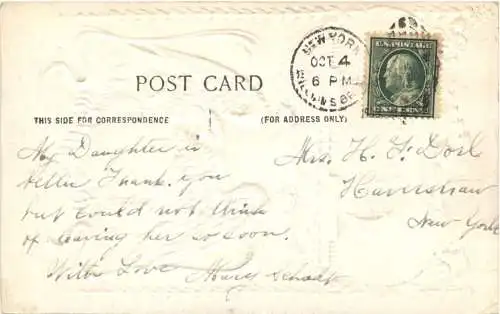 NEW YORK
OCT 4
6 PM
U.S. POSTAGE
ONE CENT
POST CARD
THIS SIDE FOR CORRESPONDENCE
(FOR ADDRESS ONLY)
My Daughter is
better Thank. you
but could not think
of leaving her so soon.
With Love Mary
Mrs. H. F.
Haverstraw
New York